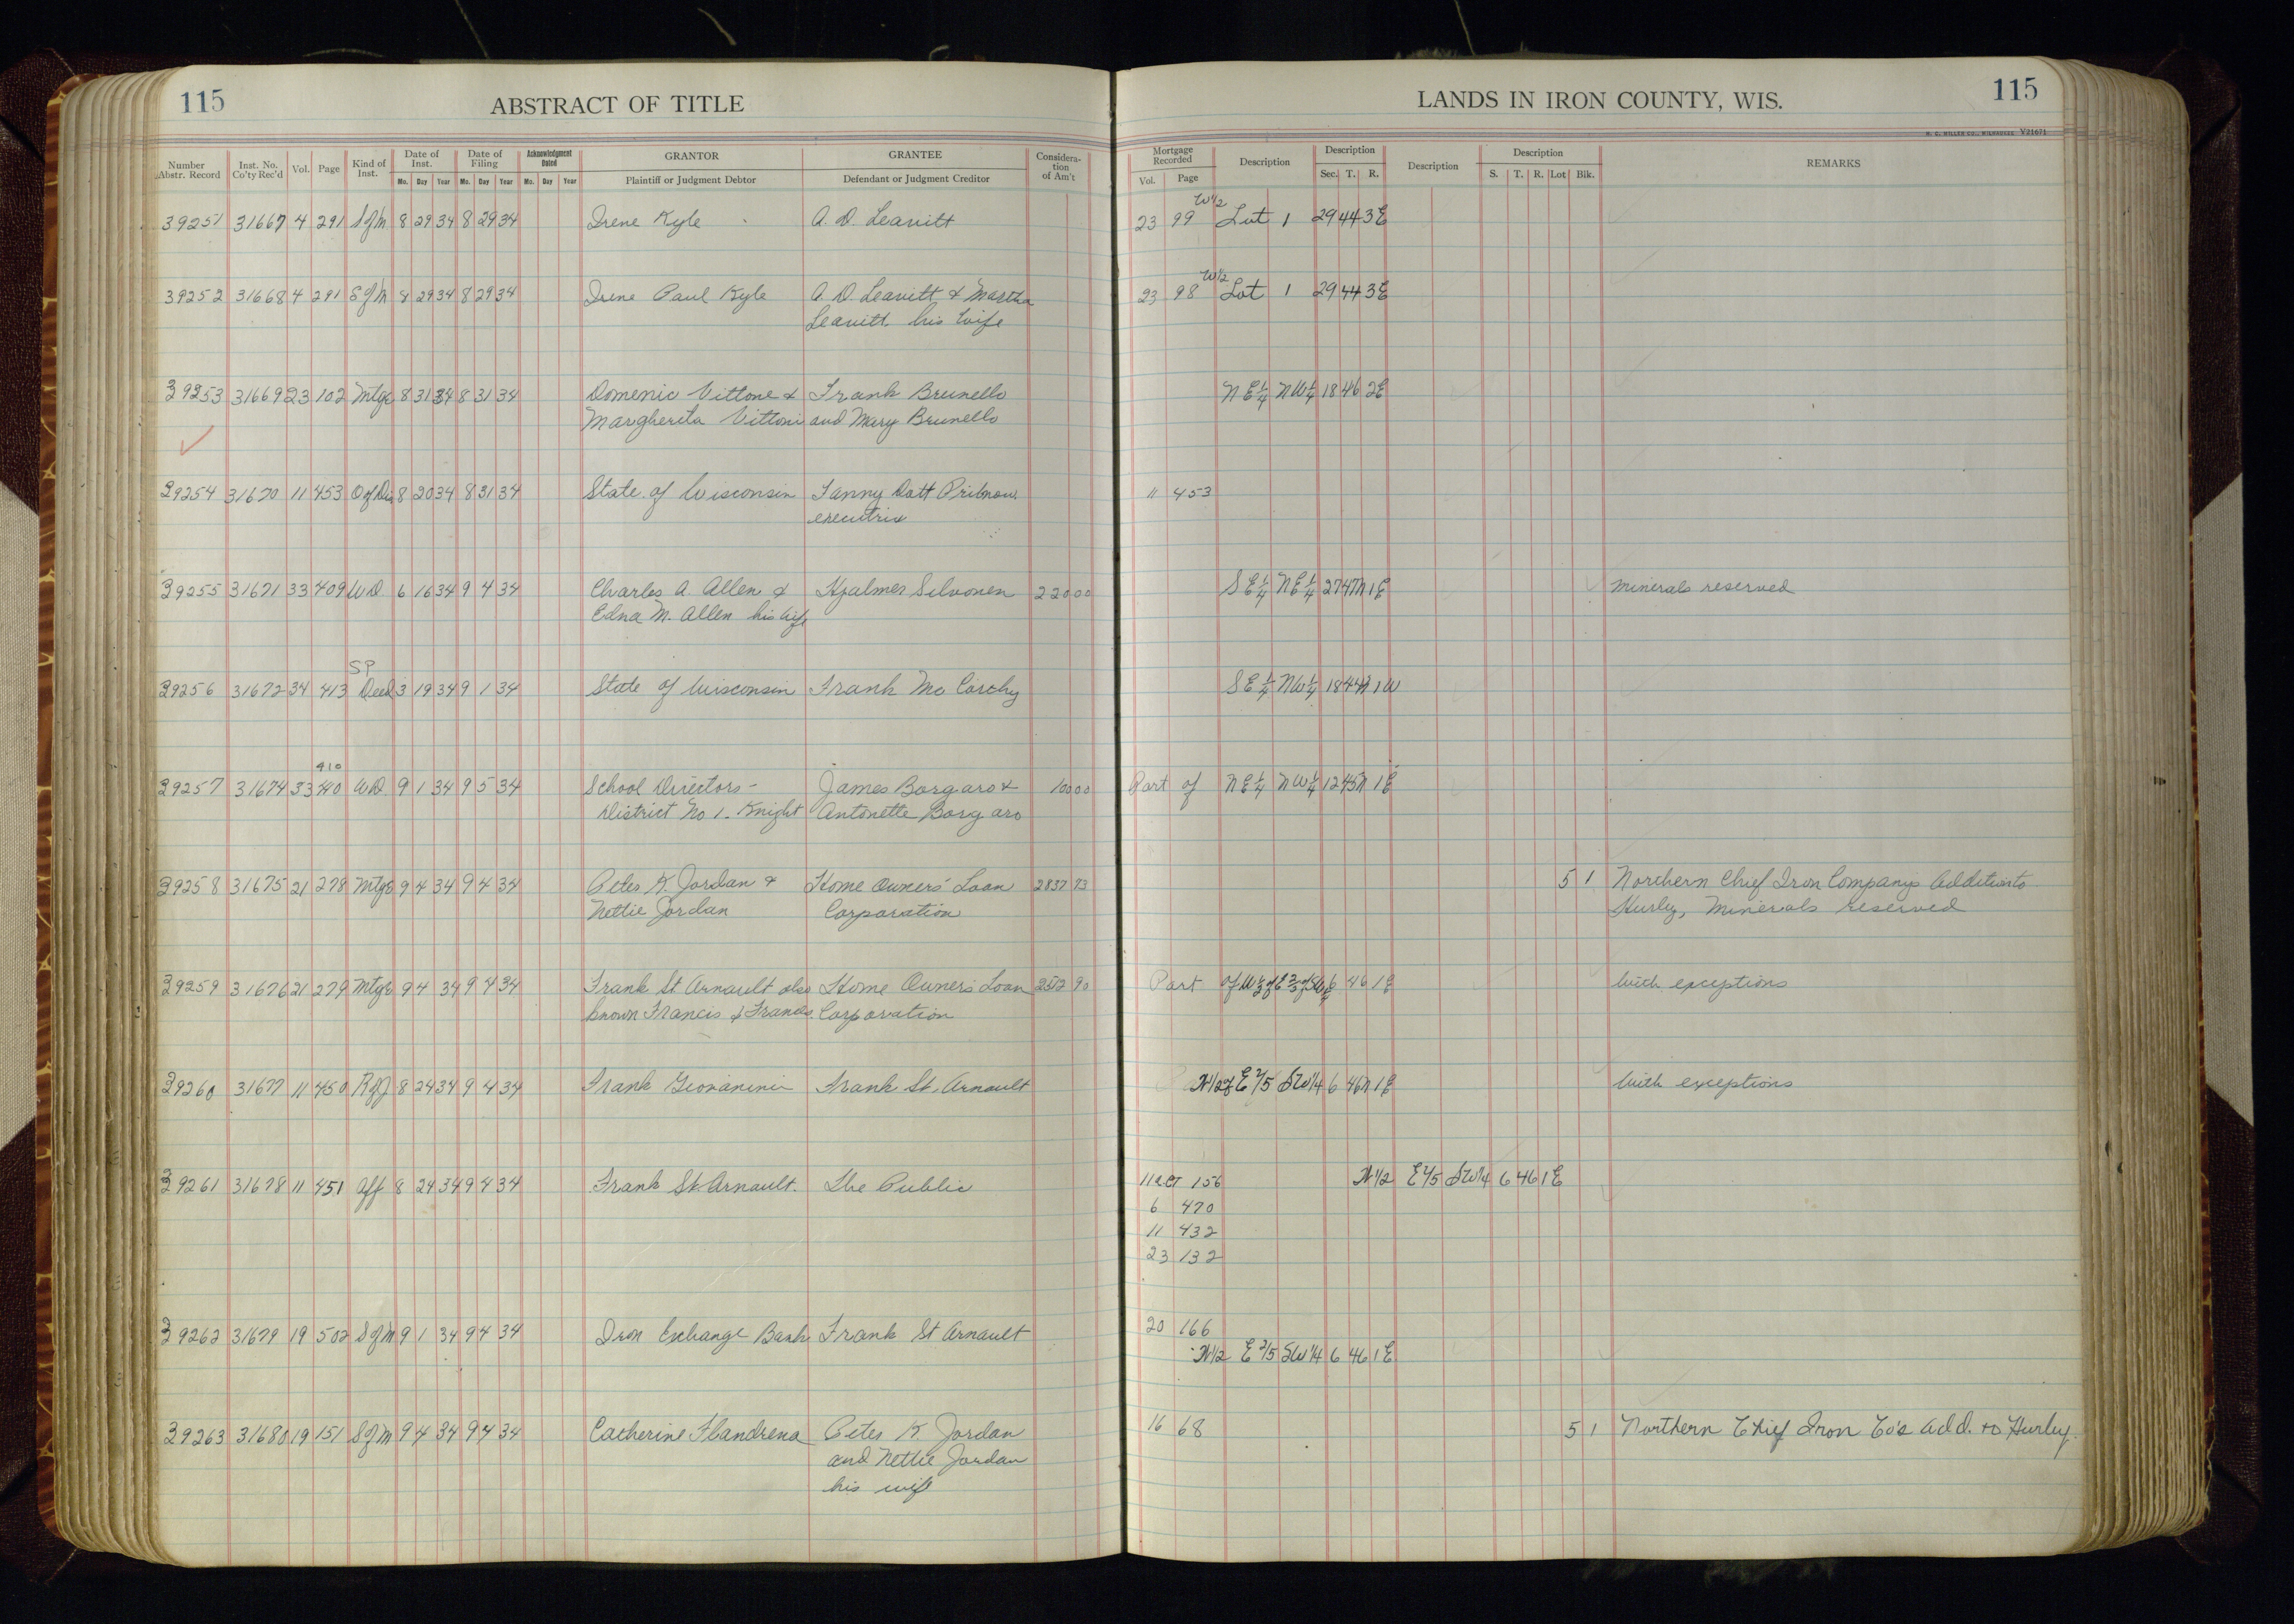 115 ABSTRACT OF TITLE LANDS IN IRON COUNTY, WIS. 115
H. C. MILLER CO., MILWAUKEE V21671
Number Abstr. Record Inst. No. Co'ty Rec'd Vol. Page Kind of Inst. Date of Inst. Mo. Day Year Date of Filing Mo. Day Year Acknowledgment Dated Mo. Day Year GRANTOR Plaintiff or Judgment Debtor GRANTEE Defendant or Judgment Creditor Consideration of Am't Mortgage Recorded Vol. Page Description Description Sec. T. R. Description Description S. T. R. Lot Blk. REMARKS
W1/2
39251 31667 4 291 S of M 8 29 34 8 29 34 Irene Kyle A. D. Leavitt 23 99 Lot 1 29 44 3E
W1/2
39252 31668 4 291 S of M 8 29 34 8 29 34 Irene Paul Kyle A. D. Leavitt & Martha 23 98 Lot 1 29 44 3E
Leavitt his wife
39253 31669 23 102 Mtge 8 31 34 8 31 34 Domenic Vittone & Frank Brunello NE 1/4 NW 1/4 18 46 2E
Margherita Vittoni and Mary Brunello
39254 31670 11 453 O of Dis 8 20 34 8 31 34 State of Wisconsin Fanny Dott Pribnow 11 453
executrix
39255 31671 33 409 WD 6 16 34 9 4 34 Charles A. Allen & Hjalmer Silvonen 220 00 SE 1/4 NE 1/4 27 47N 1E Minerals reserved
Edna M. Allen his wife
SP
39256 31672 34 413 Deed 3 19 34 9 1 34 State of Wisconsin Frank Mc Carthy SE 1/4 NW 1/4 18 44N 1W
410
39257 31674 33 WD 9 1 34 9 5 34 School Directors - James Borgaro & 100 00 Part of NE 1/4 NW 1/4 12 45N 1E
District No 1 - Knight Antonette Borgaro
39258 31675 21 278 Mtge 9 4 34 9 4 34 Peter K. Jordan & Home Owners' Loan 2837 73 5 1 Northern Chief Iron Companys Addition to
Nettie Jordan Corporation Hurley, Minerals reserved
39259 31676 21 279 Mtge 9 4 34 9 4 34 Frank St Arnault also Home Owners Loan 2512 90 Part of 6 46 1E With exceptions
known Francis & Francis Corporation
39260 31677 11 450 R of J 8 24 34 9 4 34 Frank Giovanini Frank St. Arnault N1/2 of E 2/5 SW1/4 6 46N 1E With exceptions
39261 31678 11 451 Aff 8 24 34 9 4 34 Frank St Arnault. The Public 11 156 N1/2 E 2/5 SW1/4 6 46 1E
6 470
11 432
23 132
39262 31679 19 502 S of M 9 1 34 9 4 34 Iron Exchange Bank Frank St Arnault 20 166
N1/2 E 2/5 SW1/4 6 46 1E
39263 31680 19 151 S of M 9 4 34 9 4 34 Catherine Flandrena Peter K Jordan 16 68 5 1 Northern Chief Iron Co's Add. to Hurley.
and Nettie Jordan
his wife